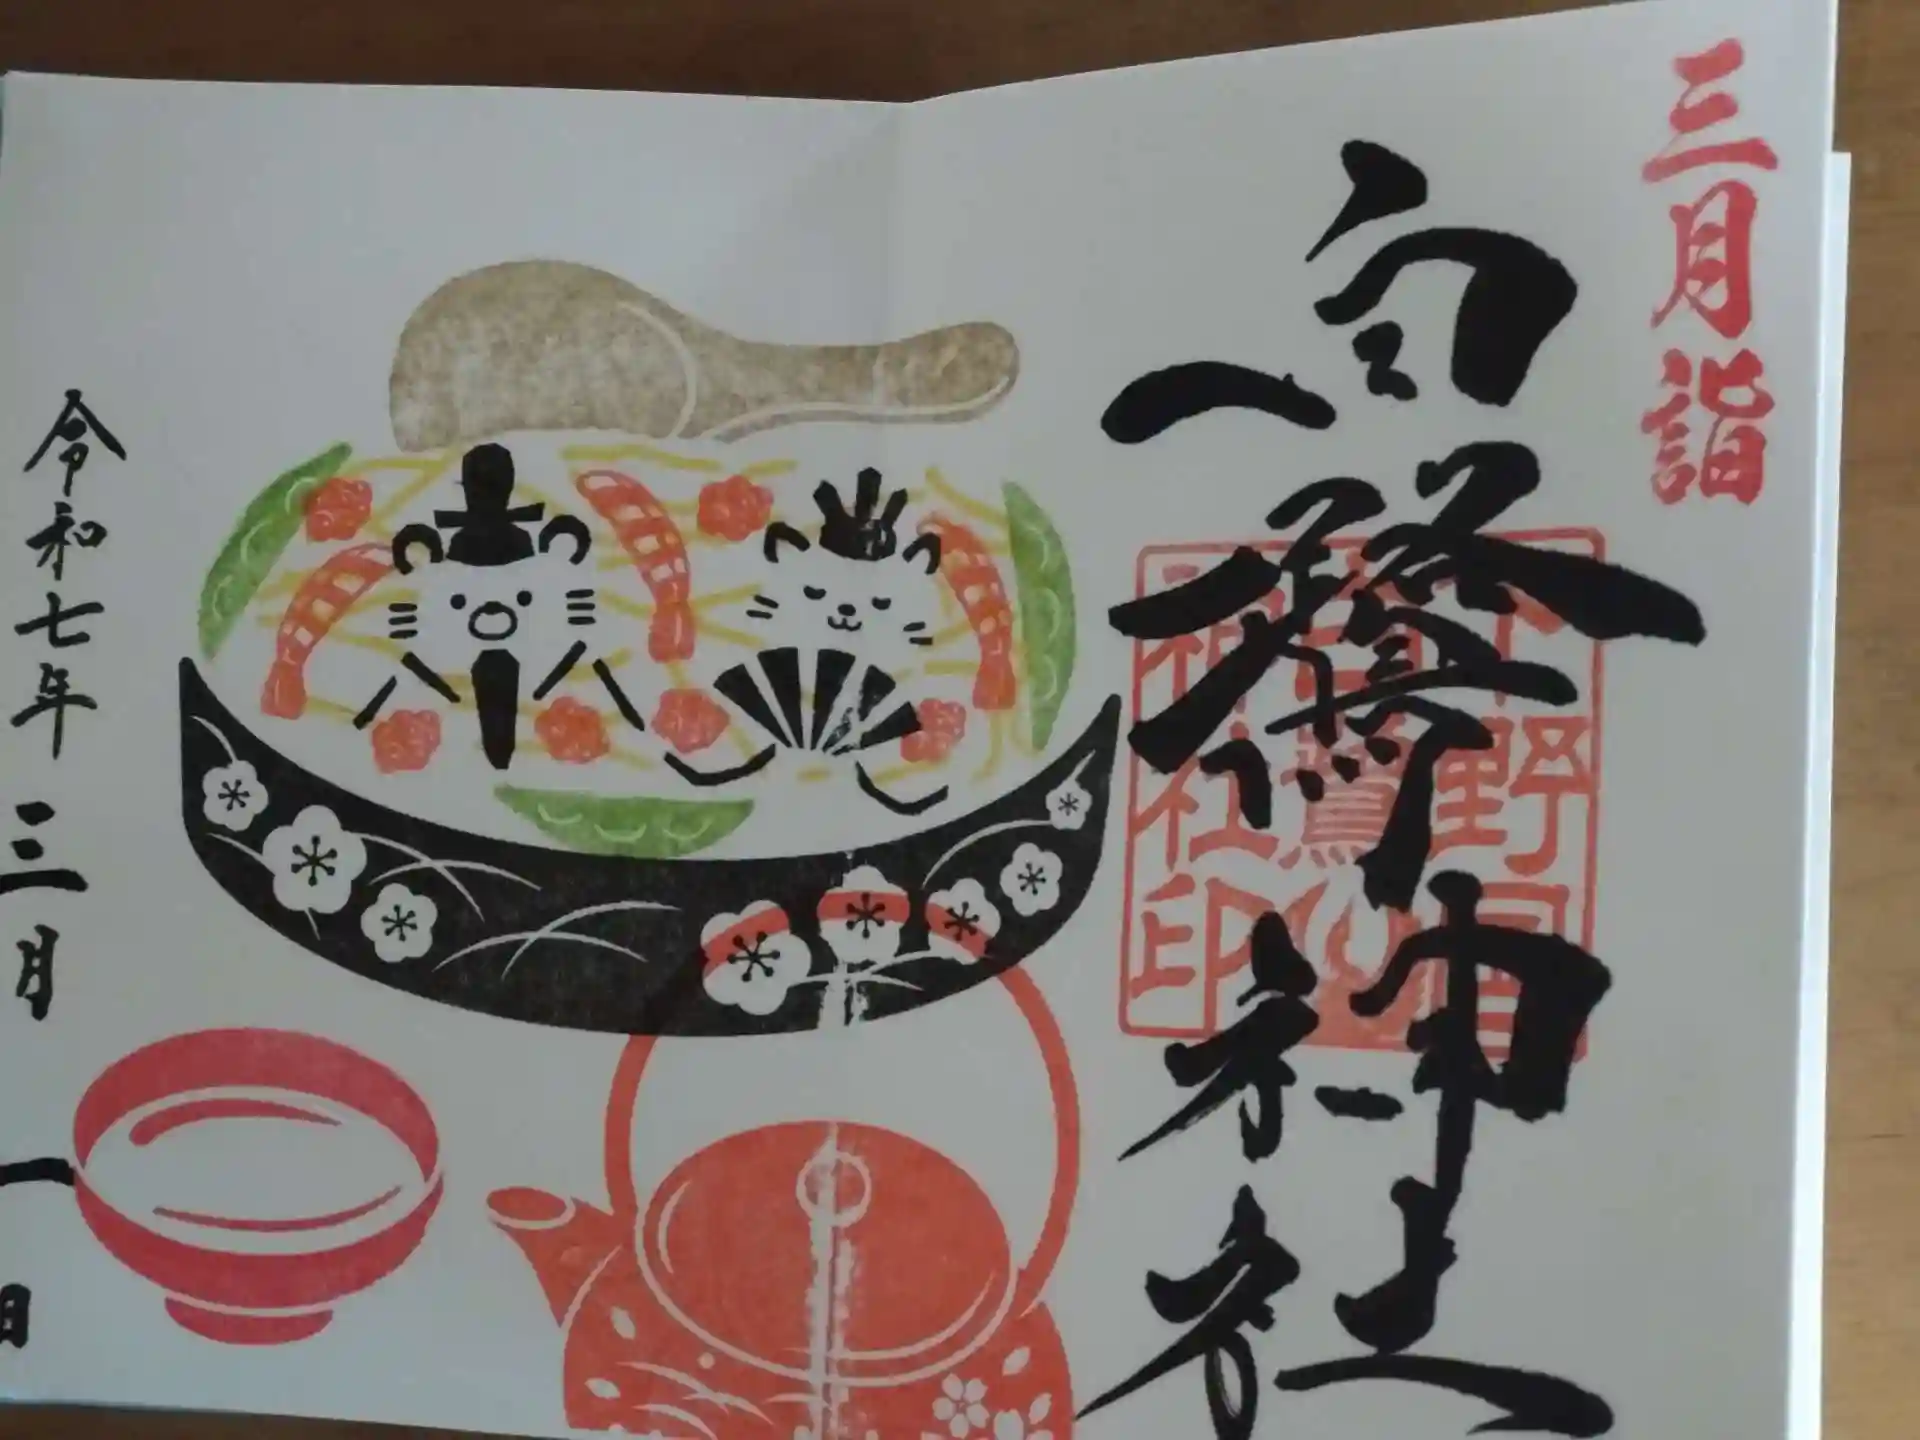 三月詣
白鷺神社
下野国
白鷺
神社印
令和七年三月一日